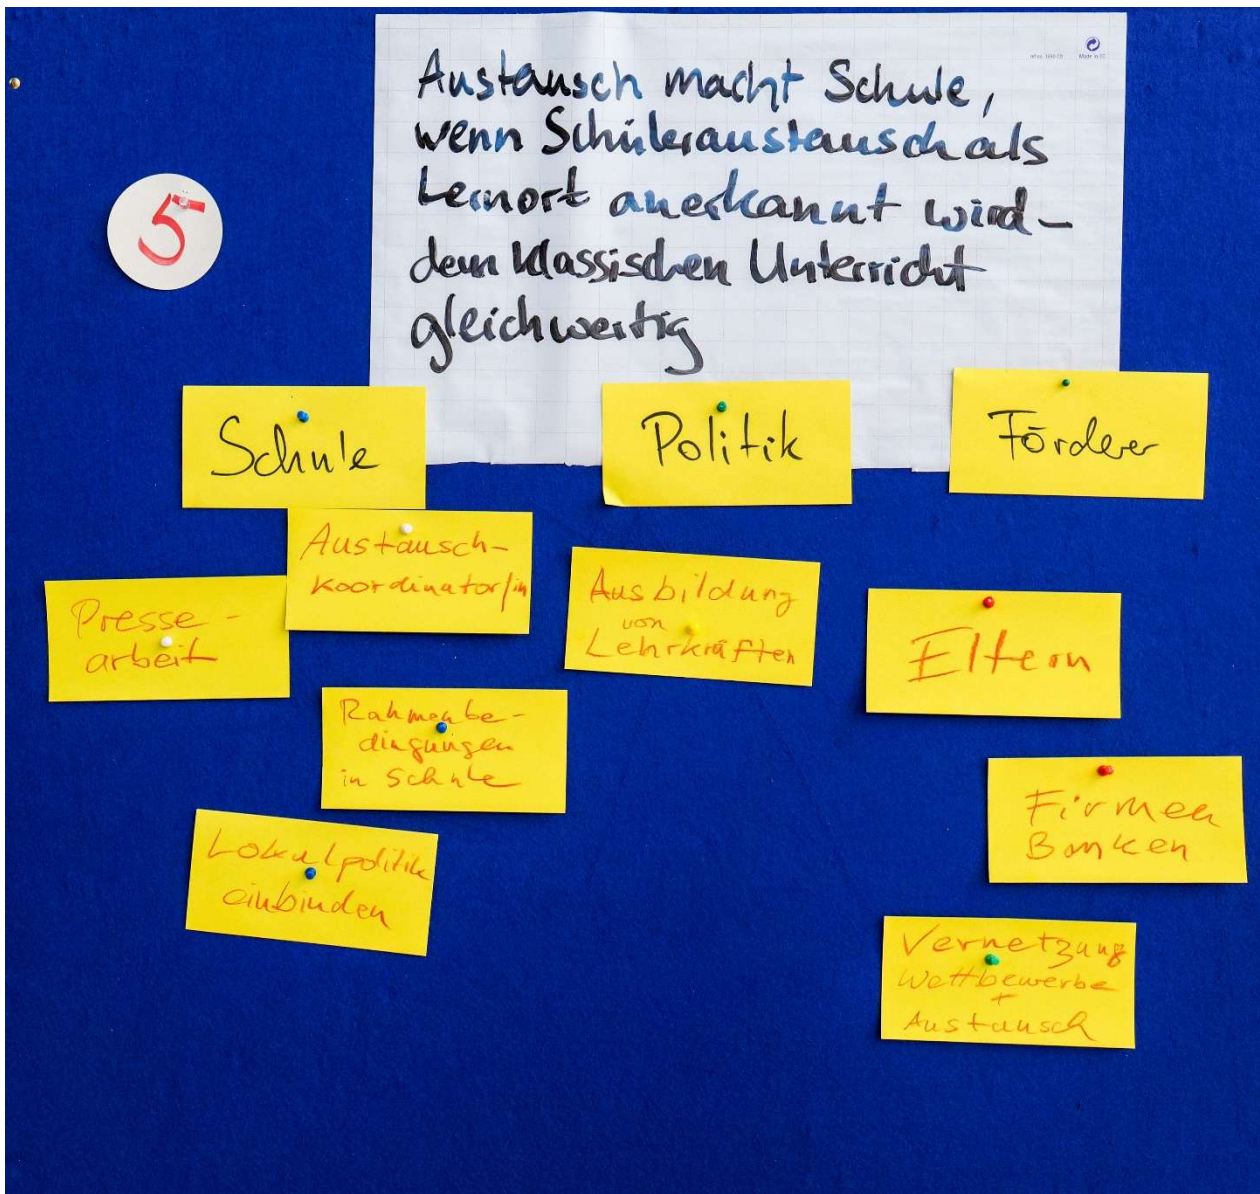 Austausch macht Schule,
wenn Schüleraustausch als
Lernort anerkannt wird –
dem klassischen Unterricht
gleichwertig
5
Schule
Politik
Förderer
Austausch-
koordinator/in
Presse-
arbeit
Ausbildung
von
Lehrkräften
Eltern
Rahmenbe-
dingungen
in Schule
Firmen
Banken
Lokalpolitik
einbinden
Vernetzung
Wettbewerbe
+
Austausch